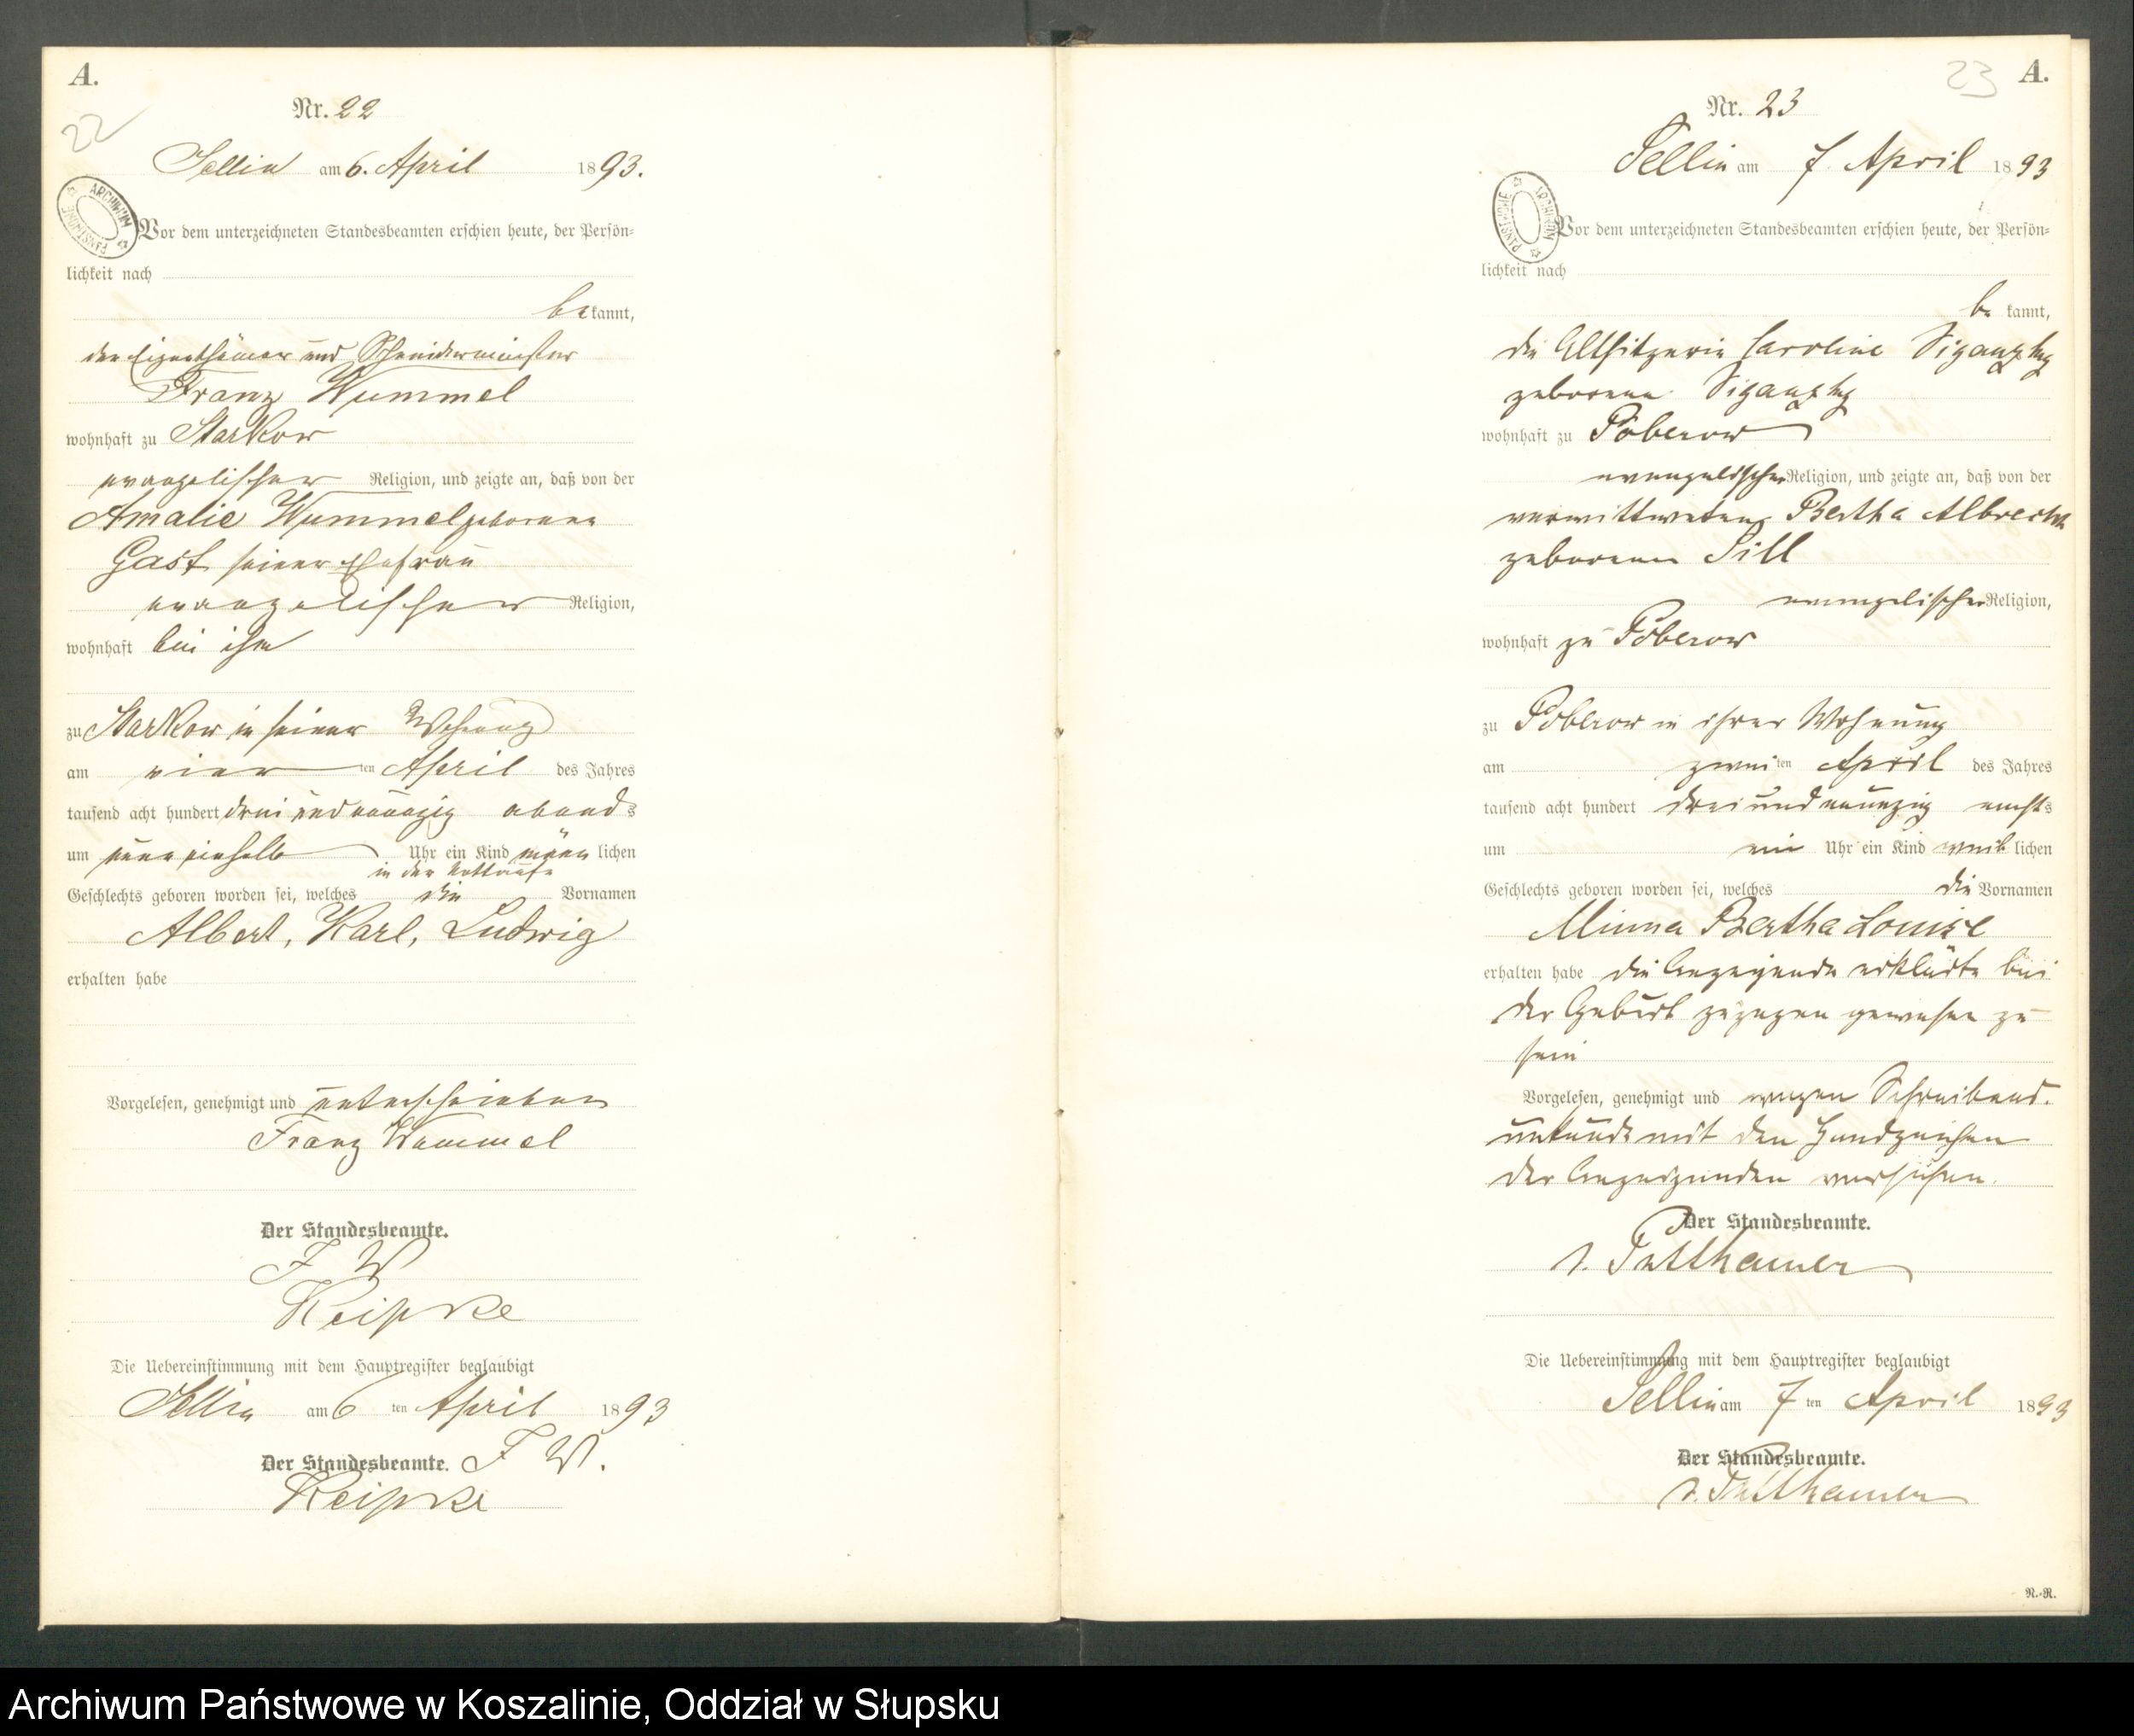 A.
22
Nr. 22
Sellin am 6. April 1893.
ARCHIWUM PAŃSTWOWE
Vor dem unterzeichneten Standesbeamten erschien heute, der Persön-
lichkeit nach
bekannt,
der Eigenthümer und Schneidermeister
Franz Wummel
wohnhaft zu Starkow
evangelischer Religion, und zeigte an, daß von der
Amalie Wummel geborene
Gast seiner Ehefrau
evangelischer Religion,
wohnhaft bei ihm
zu Starkow in seiner Wohnung
am vier ten April des Jahres
tausend acht hundert drei und neunzig abends
um neun einhalb Uhr ein Kind männlichen
in der Nottaufe
Geschlechts geboren worden sei, welches die Vornamen
Albert, Karl, Ludwig
erhalten habe
Vorgelesen, genehmigt und unterschrieben
Franz Wummel
Der Standesbeamte.
F W
Reipke
Die Uebereinstimmung mit dem Hauptregister beglaubigt
Sellin am 6 ten April 1893
Der Standesbeamte. F W.
Reipke
23
A.
Nr. 23
Sellin am 7. April 1893
ARCHIWUM PAŃSTWOWE
Vor dem unterzeichneten Standesbeamten erschien heute, der Persön-
lichkeit nach
be kannt,
die Altsitzerin Caroline
geborene
wohnhaft zu Poberow
evangelischer Religion, und zeigte an, daß von der
verwittweten Bertha Albrecht
geborenen Sill
evangelischer Religion,
wohnhaft zu Poberow
zu Poberow in ihrer Wohnung
am zwei ten April des Jahres
tausend acht hundert drei und neunzig nachts
um ein Uhr ein Kind weiblichen
Geschlechts geboren worden sei, welches die Vornamen
Minna Bertha Louise
erhalten habe die Anzeigende erklärte bei
der Geburt zugegen gewesen zu
sein
Vorgelesen, genehmigt und wegen Schreibens-
unkunde mit den Handzeichen
der Anzeigenden versehen.
Der Standesbeamte.
v. Puttkamer
Die Uebereinstimmung mit dem Hauptregister beglaubigt
Sellin am 7 ten April 1893
Der Standesbeamte.
v. Puttkamer
N.-R.
Archiwum Państwowe w Koszalinie, Oddział w Słupsku